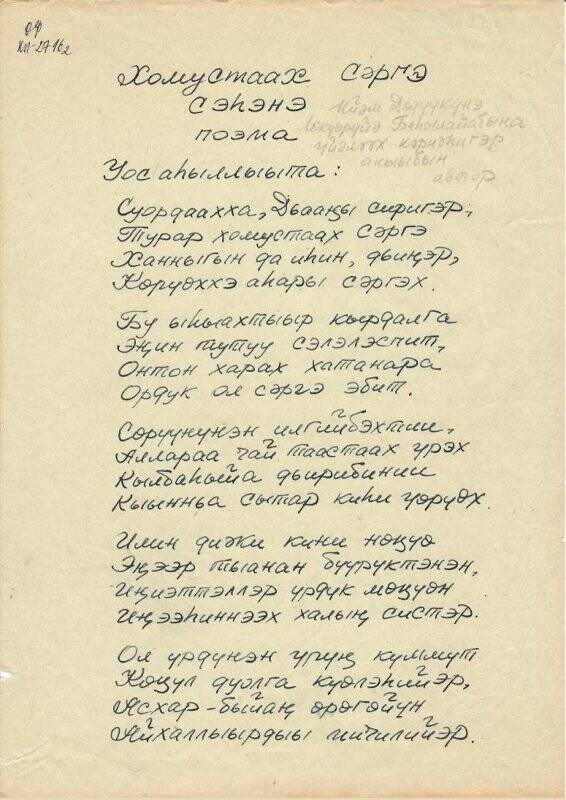 ОФ
КП-2916/2
Хомустаах сэргэ
сэһэнэ
поэма
Ийэм Дьэдьүкүнэ
үйэлээх көрдөһүгэр
аныыбын
автор
Уос аһыллыыта:
Суордаахха, Дьааҥы сиригэр,
Турар хомустаах сэргэ
Ханныгын да иһин, дьиҥэр,
Көрүөххэ аһары сэргэх.
Бу ыһыахтыыр кырдалга
Эҥин тутуу сэлэлэспит,
Онтон харах хатанара
Ордук ол сэргэ эбит.
Сөрүүнүнэн илгийбэхтии,
Аллараа чай таастаах үрэх
Кылбаһыйа дьирибинии
Кыынньа сытар киһи үөрүөх.
Илин диэки кини нөҥүө
Эҥээр тыанан бүүрүктэнэн,
Иҥиэттэллэр үрдүк мөҥүөн
Иҥээһиннээх халыҥ систэр.
Ол үрдүнэн үрүҥ куммут
Көҥүл дуолга күөлэһийэр,
Асхар-быйаҥ өрөгөйүн
Айхаллыырдыы ичилийэр.